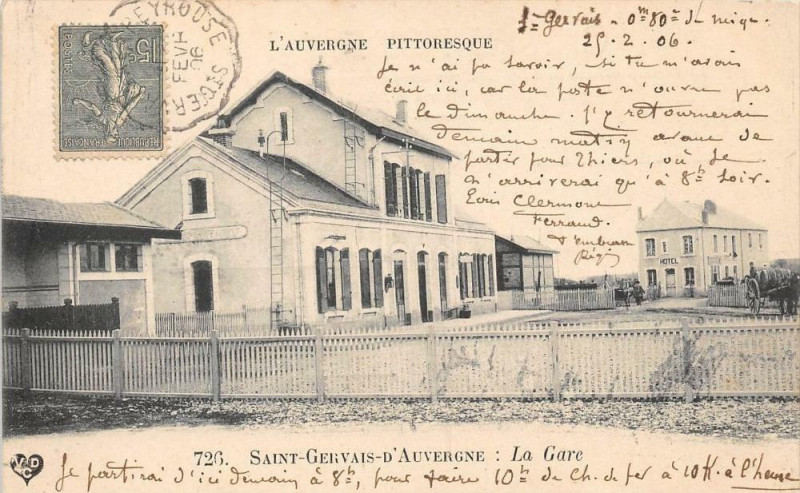 St Gervais - 0m80c de neige.
25.2.06.
L'AUVERGNE PITTORESQUE
Je n'ai pu savoir, si tu m'avais
écrit ici, car la poste n'ouvre pas
le dimanche. J'y retournerai
demain matin avant de
partir pour Thiers, où je
n'arriverai qu'à 8h soir.
Ecris Clermont
Ferrand.
Je t'embrasse
Régis
15c
POSTES
REPUBLIQUE FRANÇAISE
EYROUSE
FEVR
06
HOTEL
726. SAINT-GERVAIS-D'AUVERGNE : La Gare
VDC
Je partirai d'ici demain à 8h, pour faire 10h de Ch. de fer à 10K à l'heure